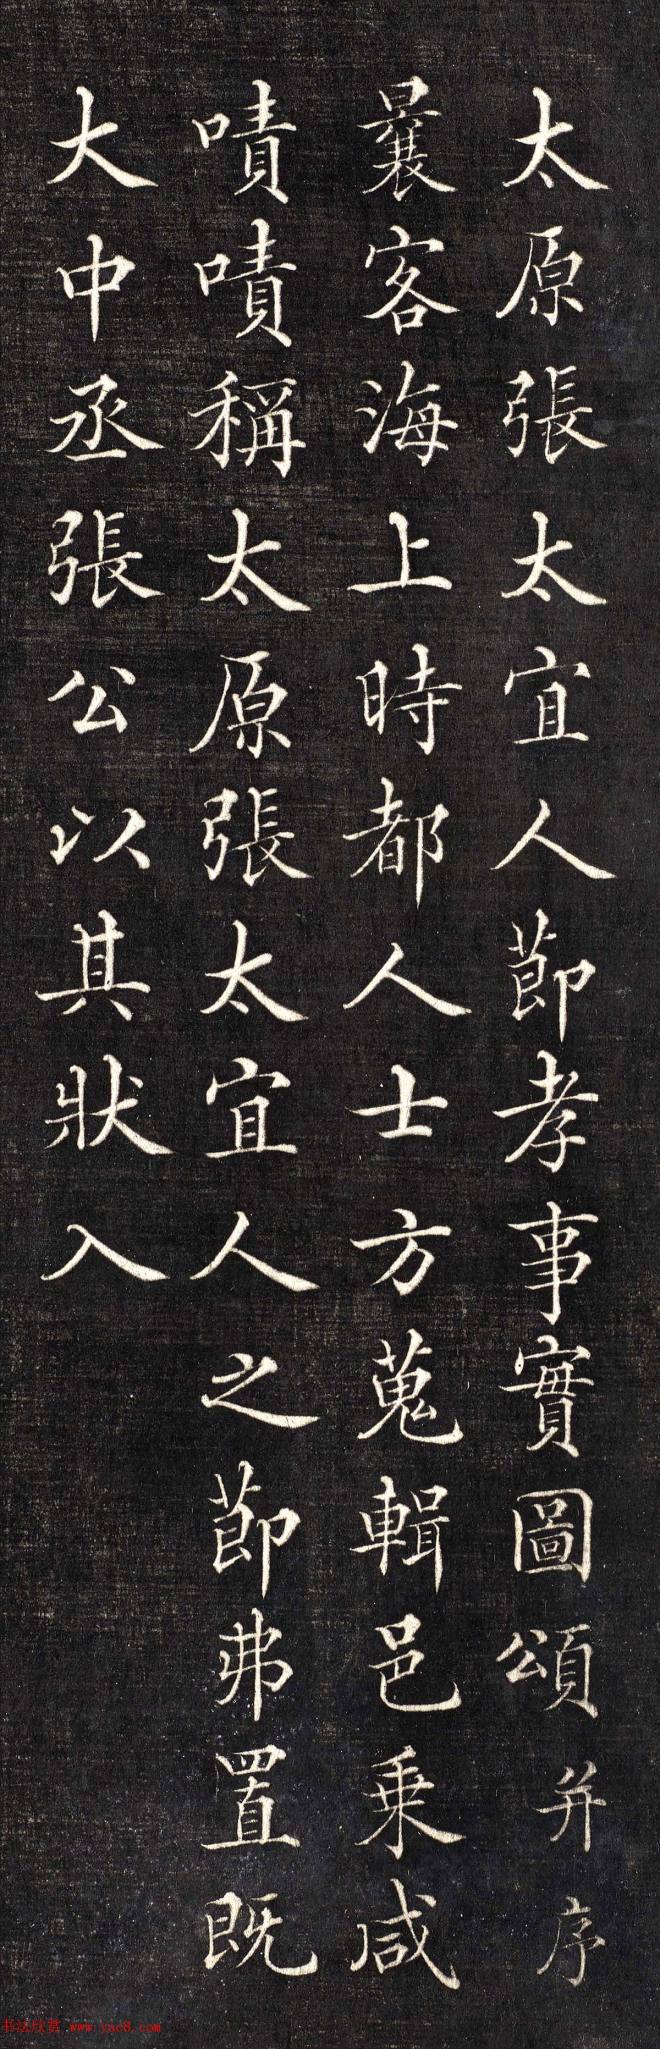 太原張太宜人節孝事實圖頌并序
曩客海上時都人士方蒐輯邑乗咸
嘖嘖稱太原張太宜人之節弗置既
大中丞張公以其狀入
书法欣赏 www.yac8.com